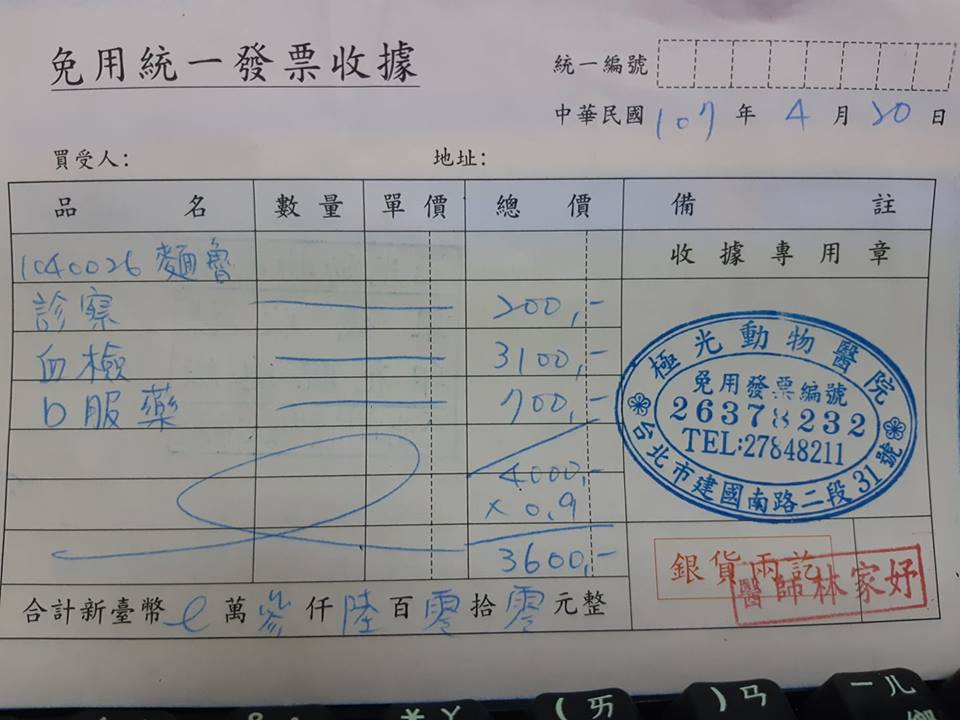 免用統一發票收據
統一編號
中華民國 107 年 4 月 20 日
買受人： 地址：
品名 數量 單價 總價 備註
收據專用章
1040026 麵魯
診察 200,-
血檢 3100,-
口服藥 700,-
4000,-
x 0.9
3600,-
合計新臺幣 萬 參 仟 陸 百 零 拾 零 元整
極光動物醫院
免用發票編號
26378232
TEL:27848211
台北市建國南路二段31號
銀貨兩訖
醫師林家妤
ㄞ
ㄢ
ㄦ
( 
)
* ㄚ